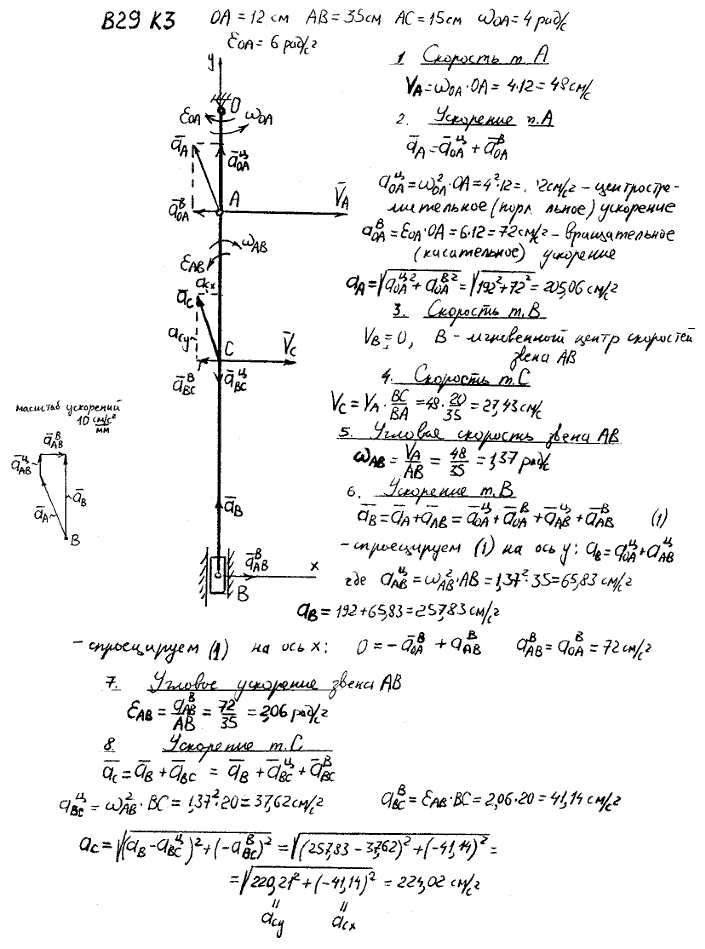 В29 К3 OA = 12 см AB = 35 см AC = 15 см ω_OA = 4 рад/с
ε_OA = 6 рад/с²
y
O
ε_OA ω_OA
a̅_A
a̅_OA^ц
a̅_OA^в A V̅_A
ω_AB
ε_AB
a_cx
a̅_C
a_cy
C V̅_C
a̅_BC^в a̅_BC^ц
масштаб ускорений
10 см/с²/мм
a̅_AB^в
a̅_AB^ц
a̅_B
a̅_A
B
a̅_B
a̅_AB^в x
B
1. Скорость т. A
V_A = ω_OA · OA = 4·12 = 48 см/с
2. Ускорение т. A
a̅_A = a̅_OA^ц + a̅_OA^в
a_OA^ц = ω_OA² · OA = 4²·12 = 2 см/с² – центростре-
мительное (норм льное) ускорение
a_OA^в = ε_OA · OA = 6·12 = 72 см/с² – вращательное
(касательное) ускорение
a_A = √(a_OA^ц² + a_OA^в²) = √(192² + 72²) = 205,06 см/с²
3. Скорость т. B
V_B = 0, B – мгновенный центр скоростей
звена AB
4. Скорость т. C
V_C = V_A · BC/BA = 48 · 20/35 = 27,43 см/с
5. Угловая скорость звена AB
ω_AB = V_A/AB = 48/35 = 1,37 рад/с
6. Ускорение т. B
a̅_B = a̅_A + a̅_AB = a̅_OA^ц + a̅_OA^в + a̅_AB^ц + a̅_AB^в (1)
– спроецируем (1) на ось y: a_B = a_OA^ц + a_AB^ц
где a_AB^ц = ω_AB² · AB = 1,37² · 35 = 65,83 см/с²
a_B = 192 + 65,83 = 257,83 см/с²
– спроецируем (1) на ось x: 0 = – a̅_OA^в + a_AB^в a_AB^в = a_OA^в = 72 см/с²
7. Угловое ускорение звена AB
ε_AB = a_AB^в/AB = 72/35 = 2,06 рад/с²
8. Ускорение т. C
a̅_C = a̅_B + a̅_BC = a̅_B + a̅_BC^ц + a̅_BC^в
a_BC^ц = ω_AB² · BC = 1,37² · 20 = 37,62 см/с² a_BC^в = ε_AB · BC = 2,06 · 20 = 41,14 см/с²
a_C = √((a_B – a_BC^ц)² + (–a_BC^в)²) = √((257,83 – 37,62)² + (–41,14)²) =
= √(220,21² + (–41,14)²) = 224,02 см/с²
= =
a_cy a_cx